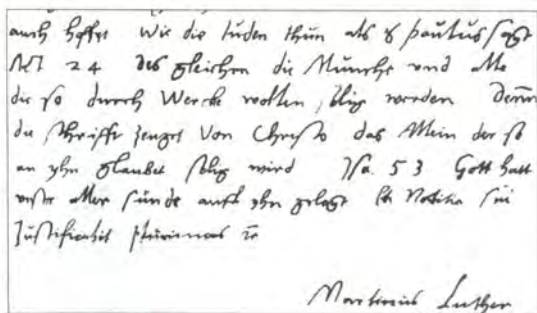 auch hoffet Wie die Juden thun als S paulus sagt
Act 24 des gleichen die Munche vnd alle
die so durch Wercke wollen selig werden Denn
die Schrifft zeuget von Christo das Allein der so
an yhn glaubet selig wird Jsa. 53 Gott hatt
vnser aller sunde auff yhn gelegt Et Notitia sui
Justificabit plurimos ꝛc
Martinus Luther